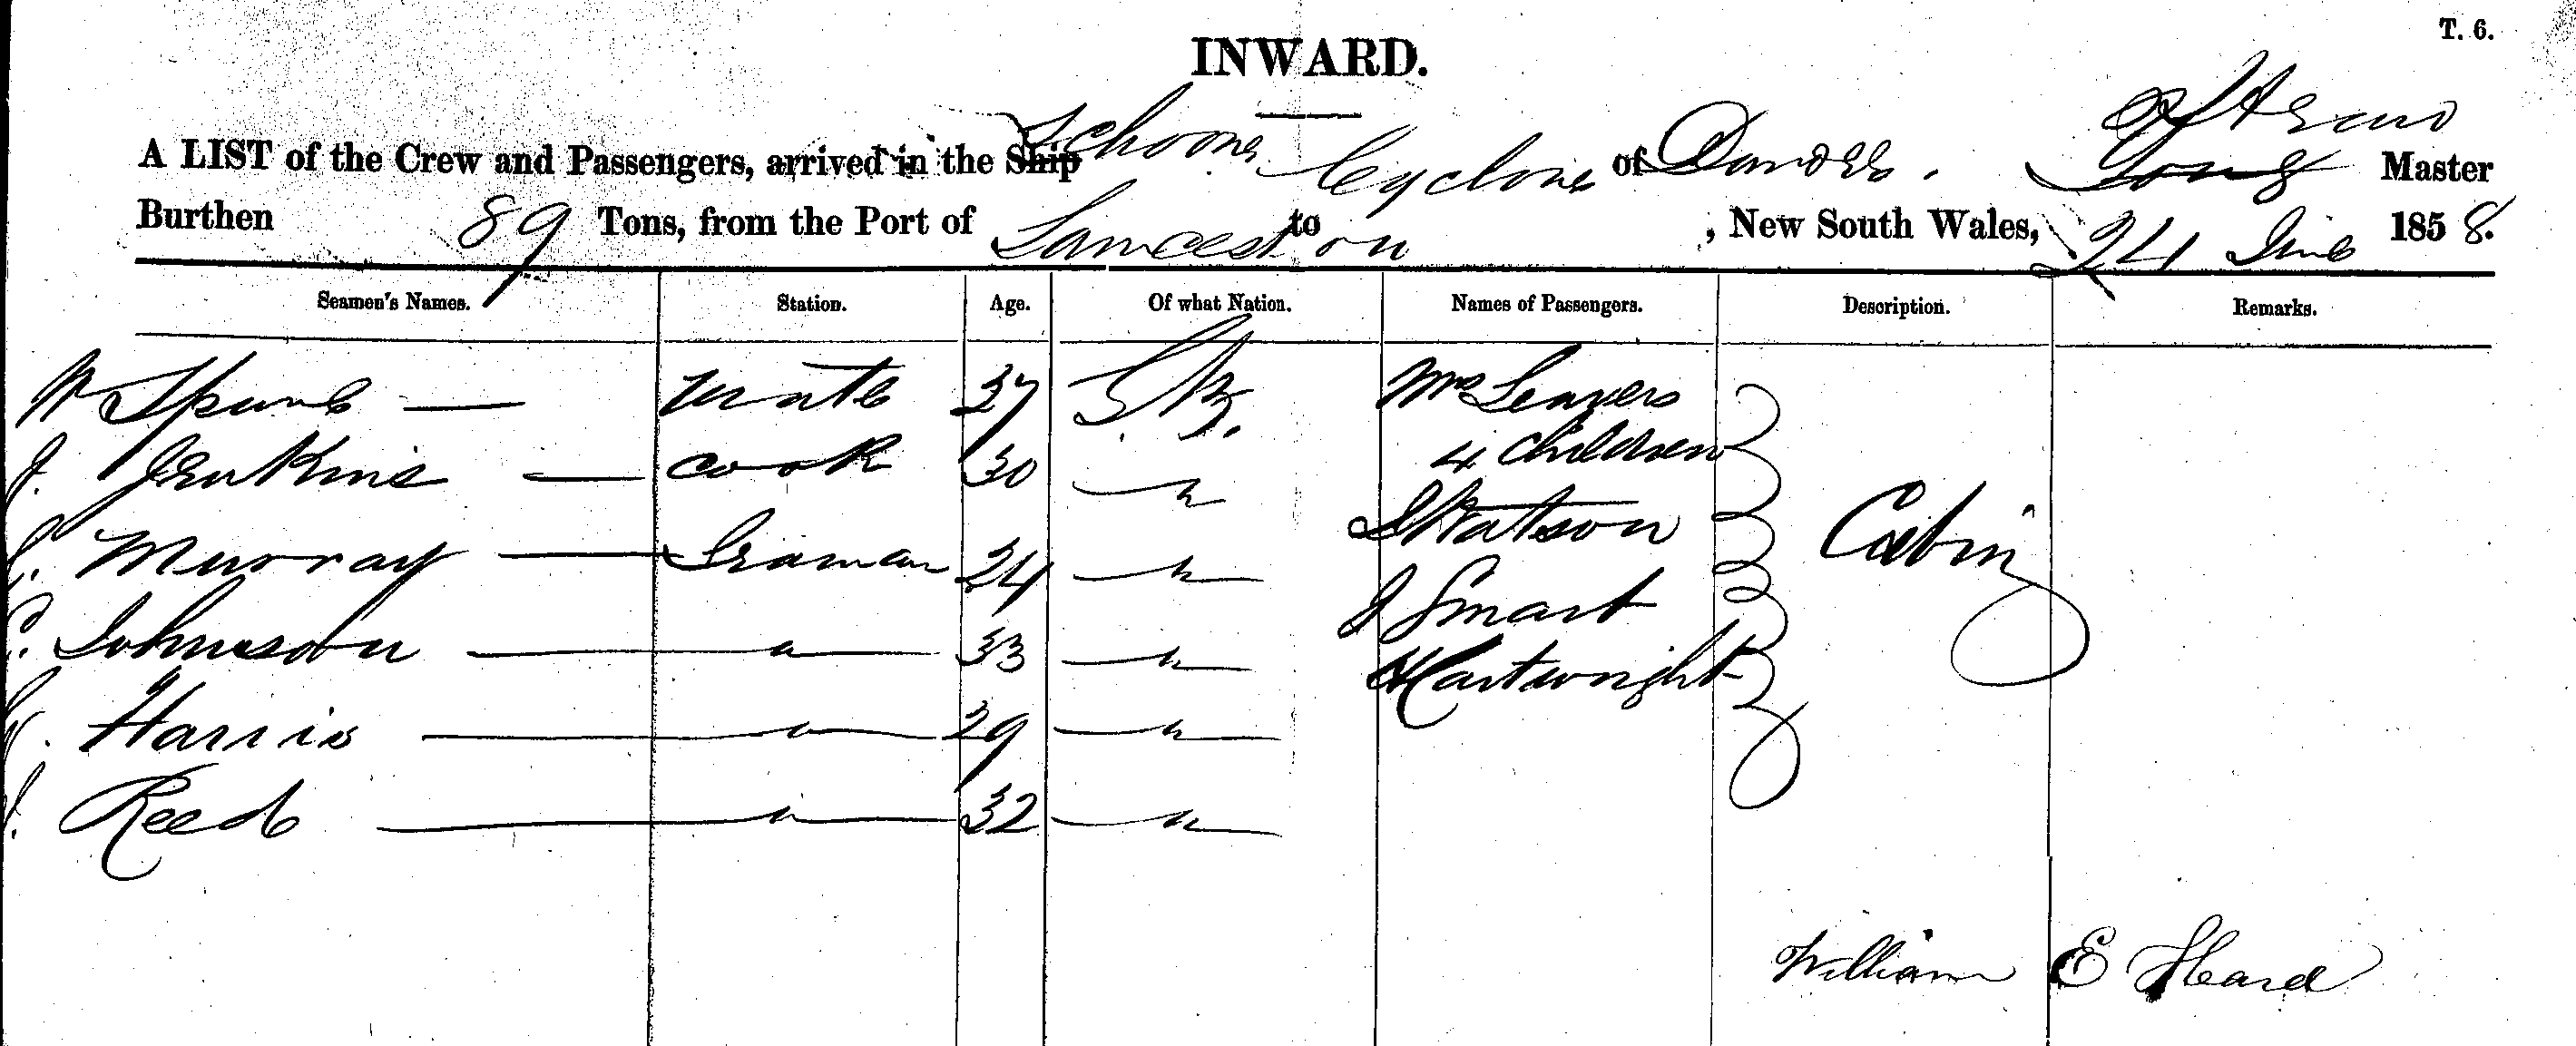 T. 6.
INWARD.
A LIST of the Crew and Passengers, arrived in the Ship Schooner Cyclone of Master
Burthen 89 Tons, from the Port of Lanceston to , New South Wales, 24 June 1858.
Seamen's Names. Station. Age. Of what Nation. Names of Passengers. Description. Remarks.
W mate 37 Mrs Leavers
4 children
J. Jenkins — cook 30 " Watson Cabin
Murray — Seaman 24 " J Smart
C. Johnson — " 33 " Cartwright
Harris — " 29 "
J. Reed — " 32 "
William E Heard